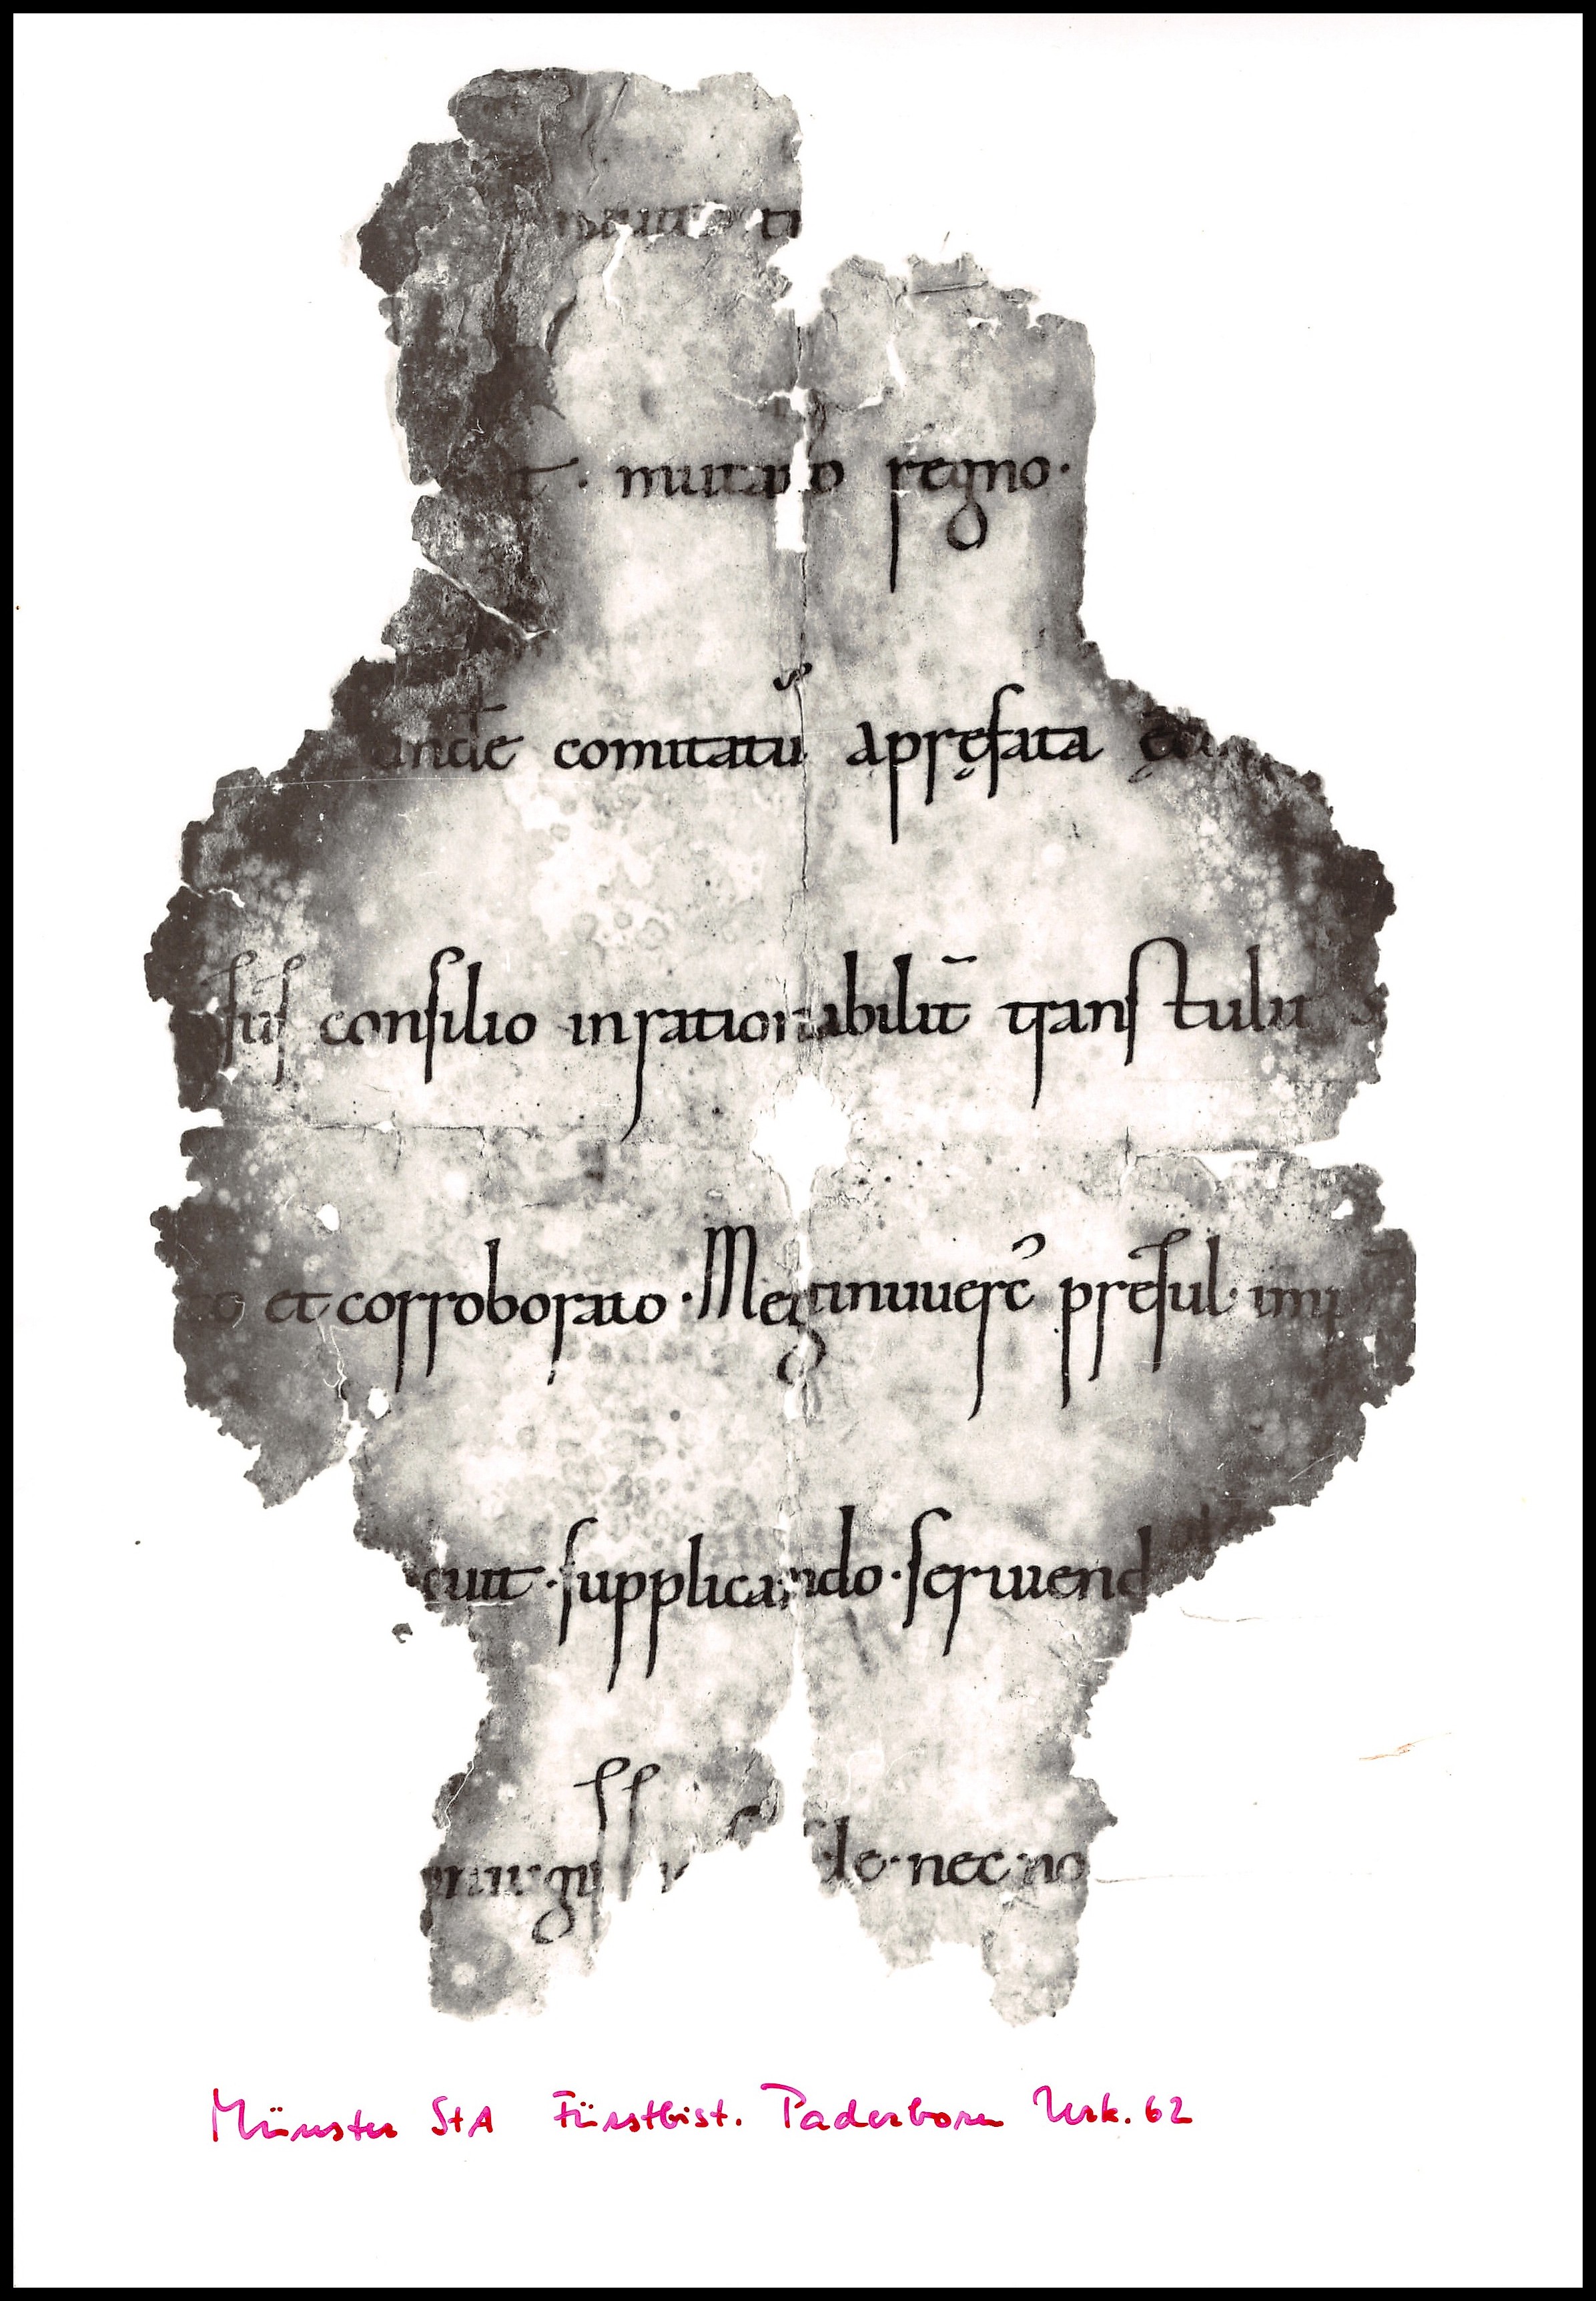 t · mutato regno ·
unde comitatū a pręfata
sus consilio inrationabilit̄ transtulit
to et corroborato · Meginuuerc̄ presul · imp
cuit · supplicando · seruiend
iurgiis de · nec · no
Münster StA Fürstbist. Paderborn Urk. 62